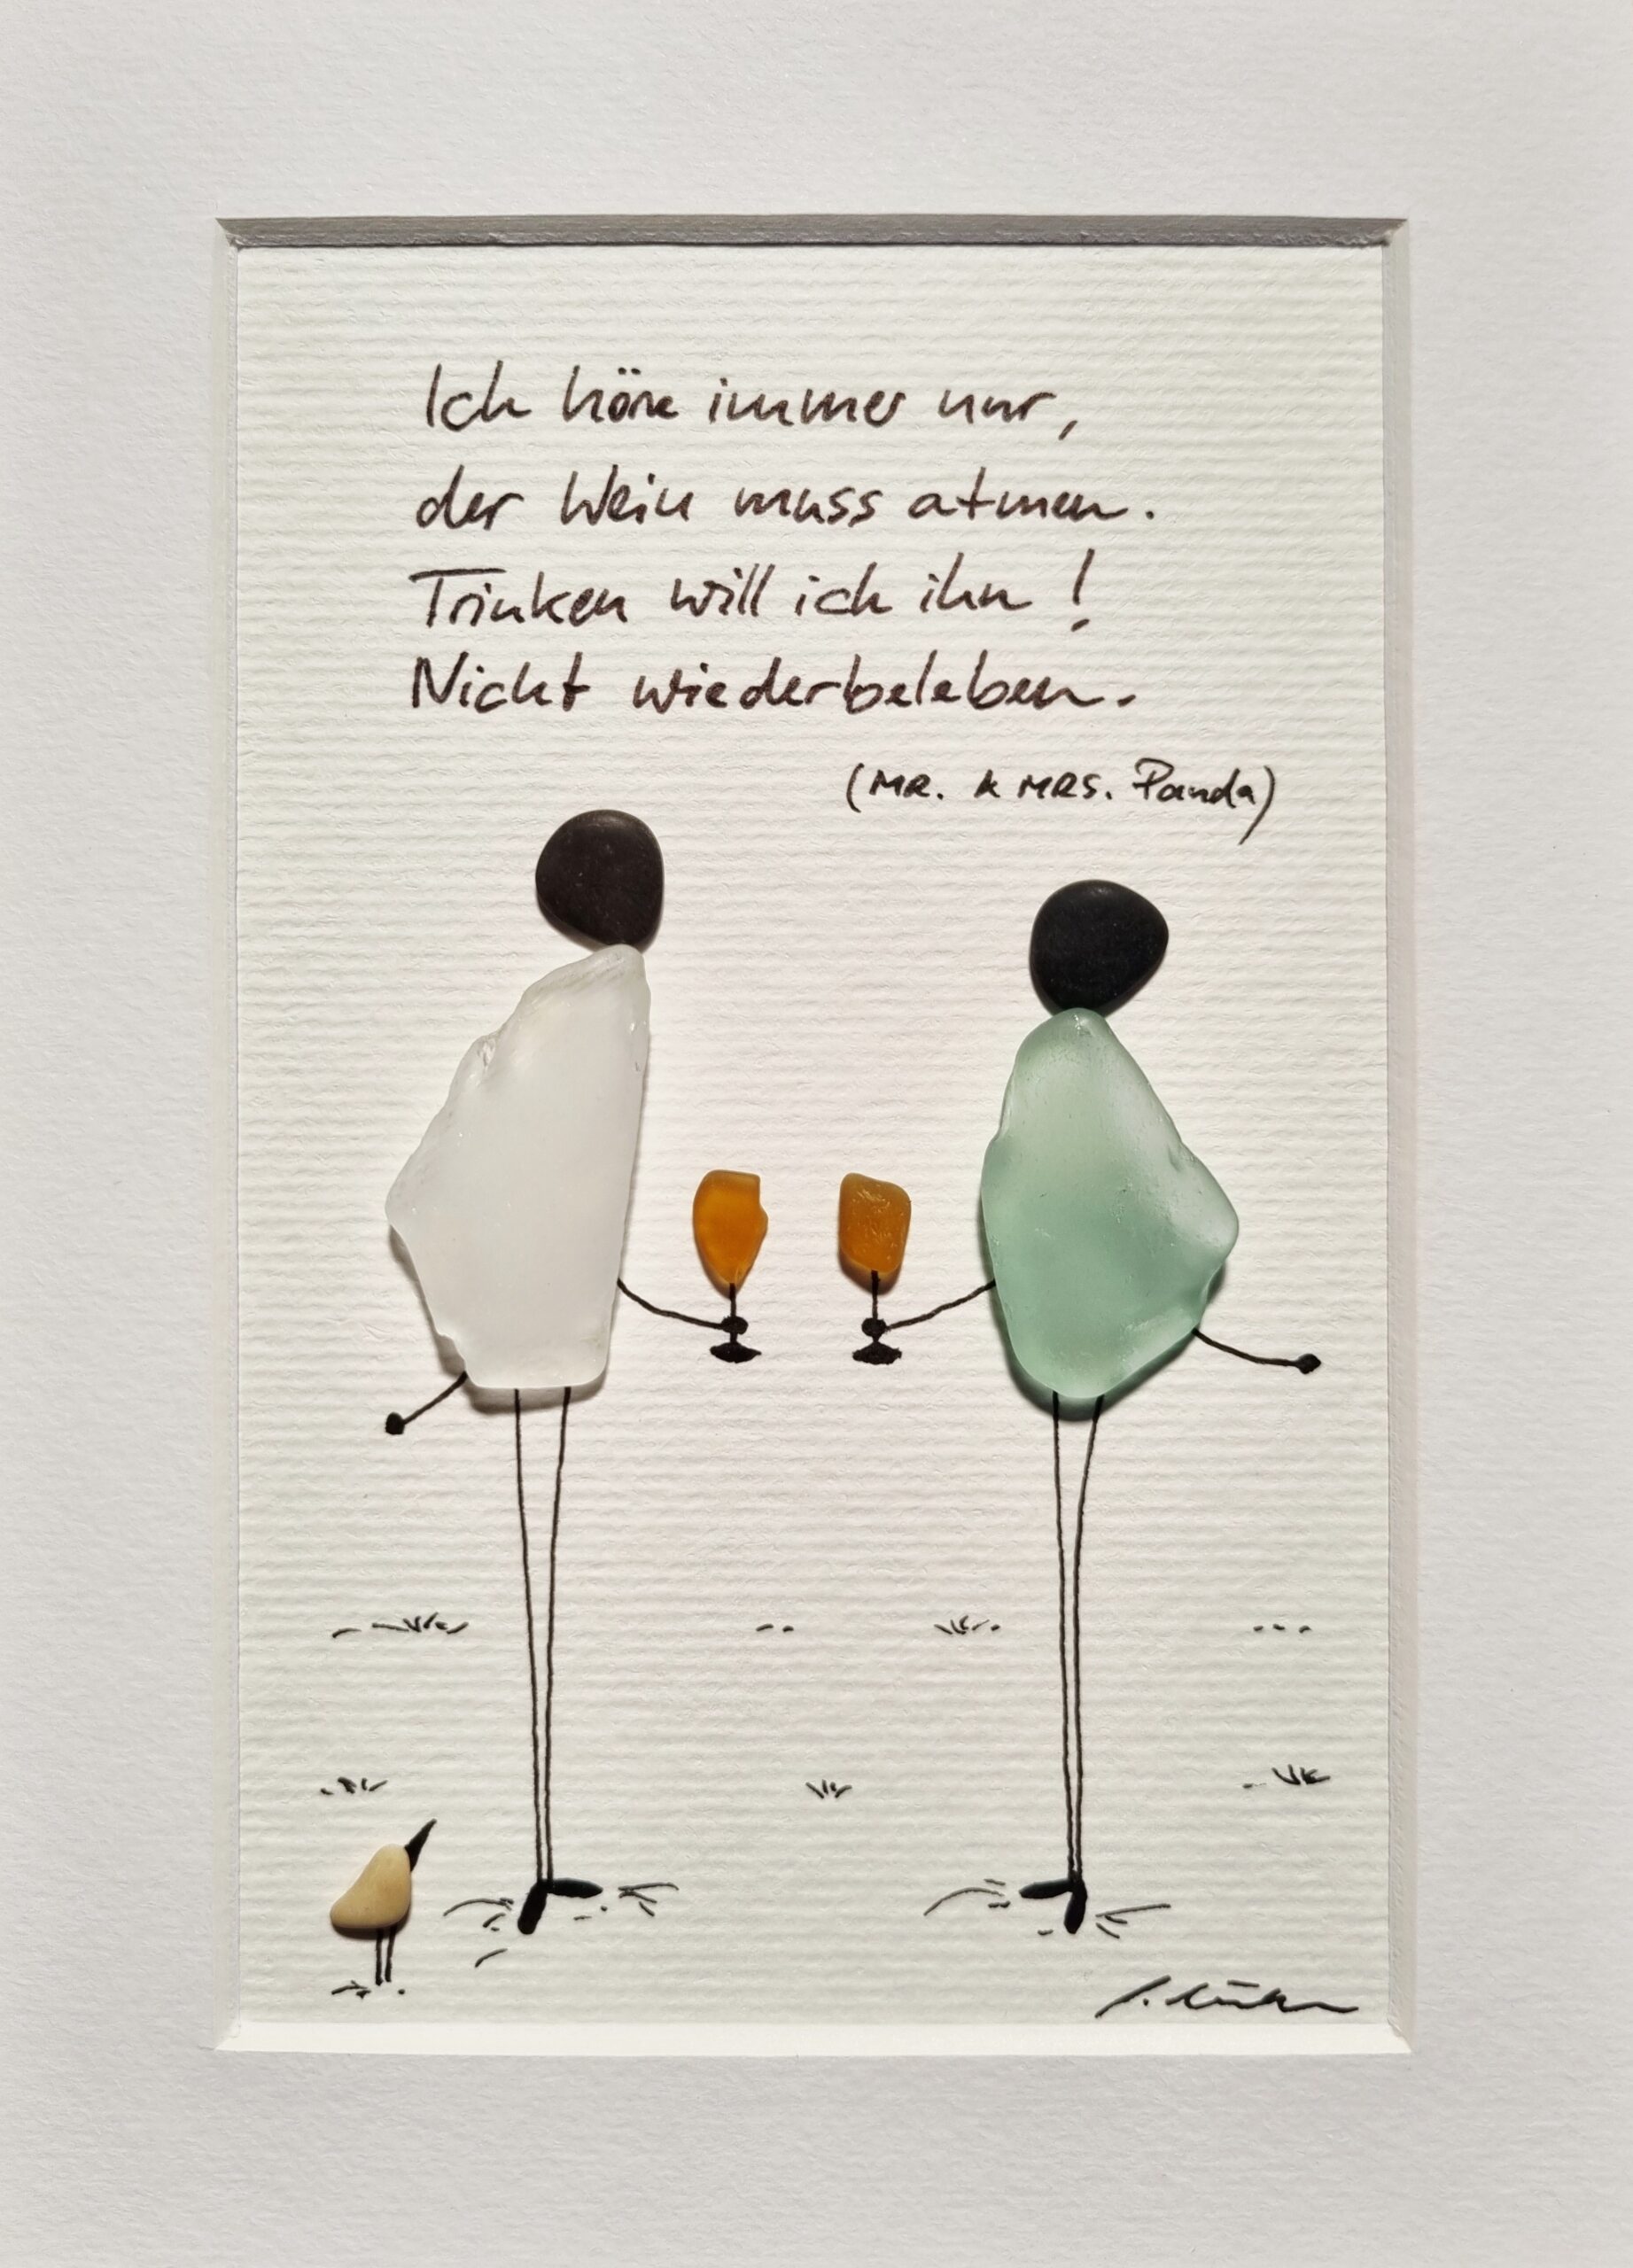 Ich höre immer nur,
der Wein muss atmen.
Trinken will ich ihn!
Nicht wiederbeleben.
(MR. & MRS. Panda)